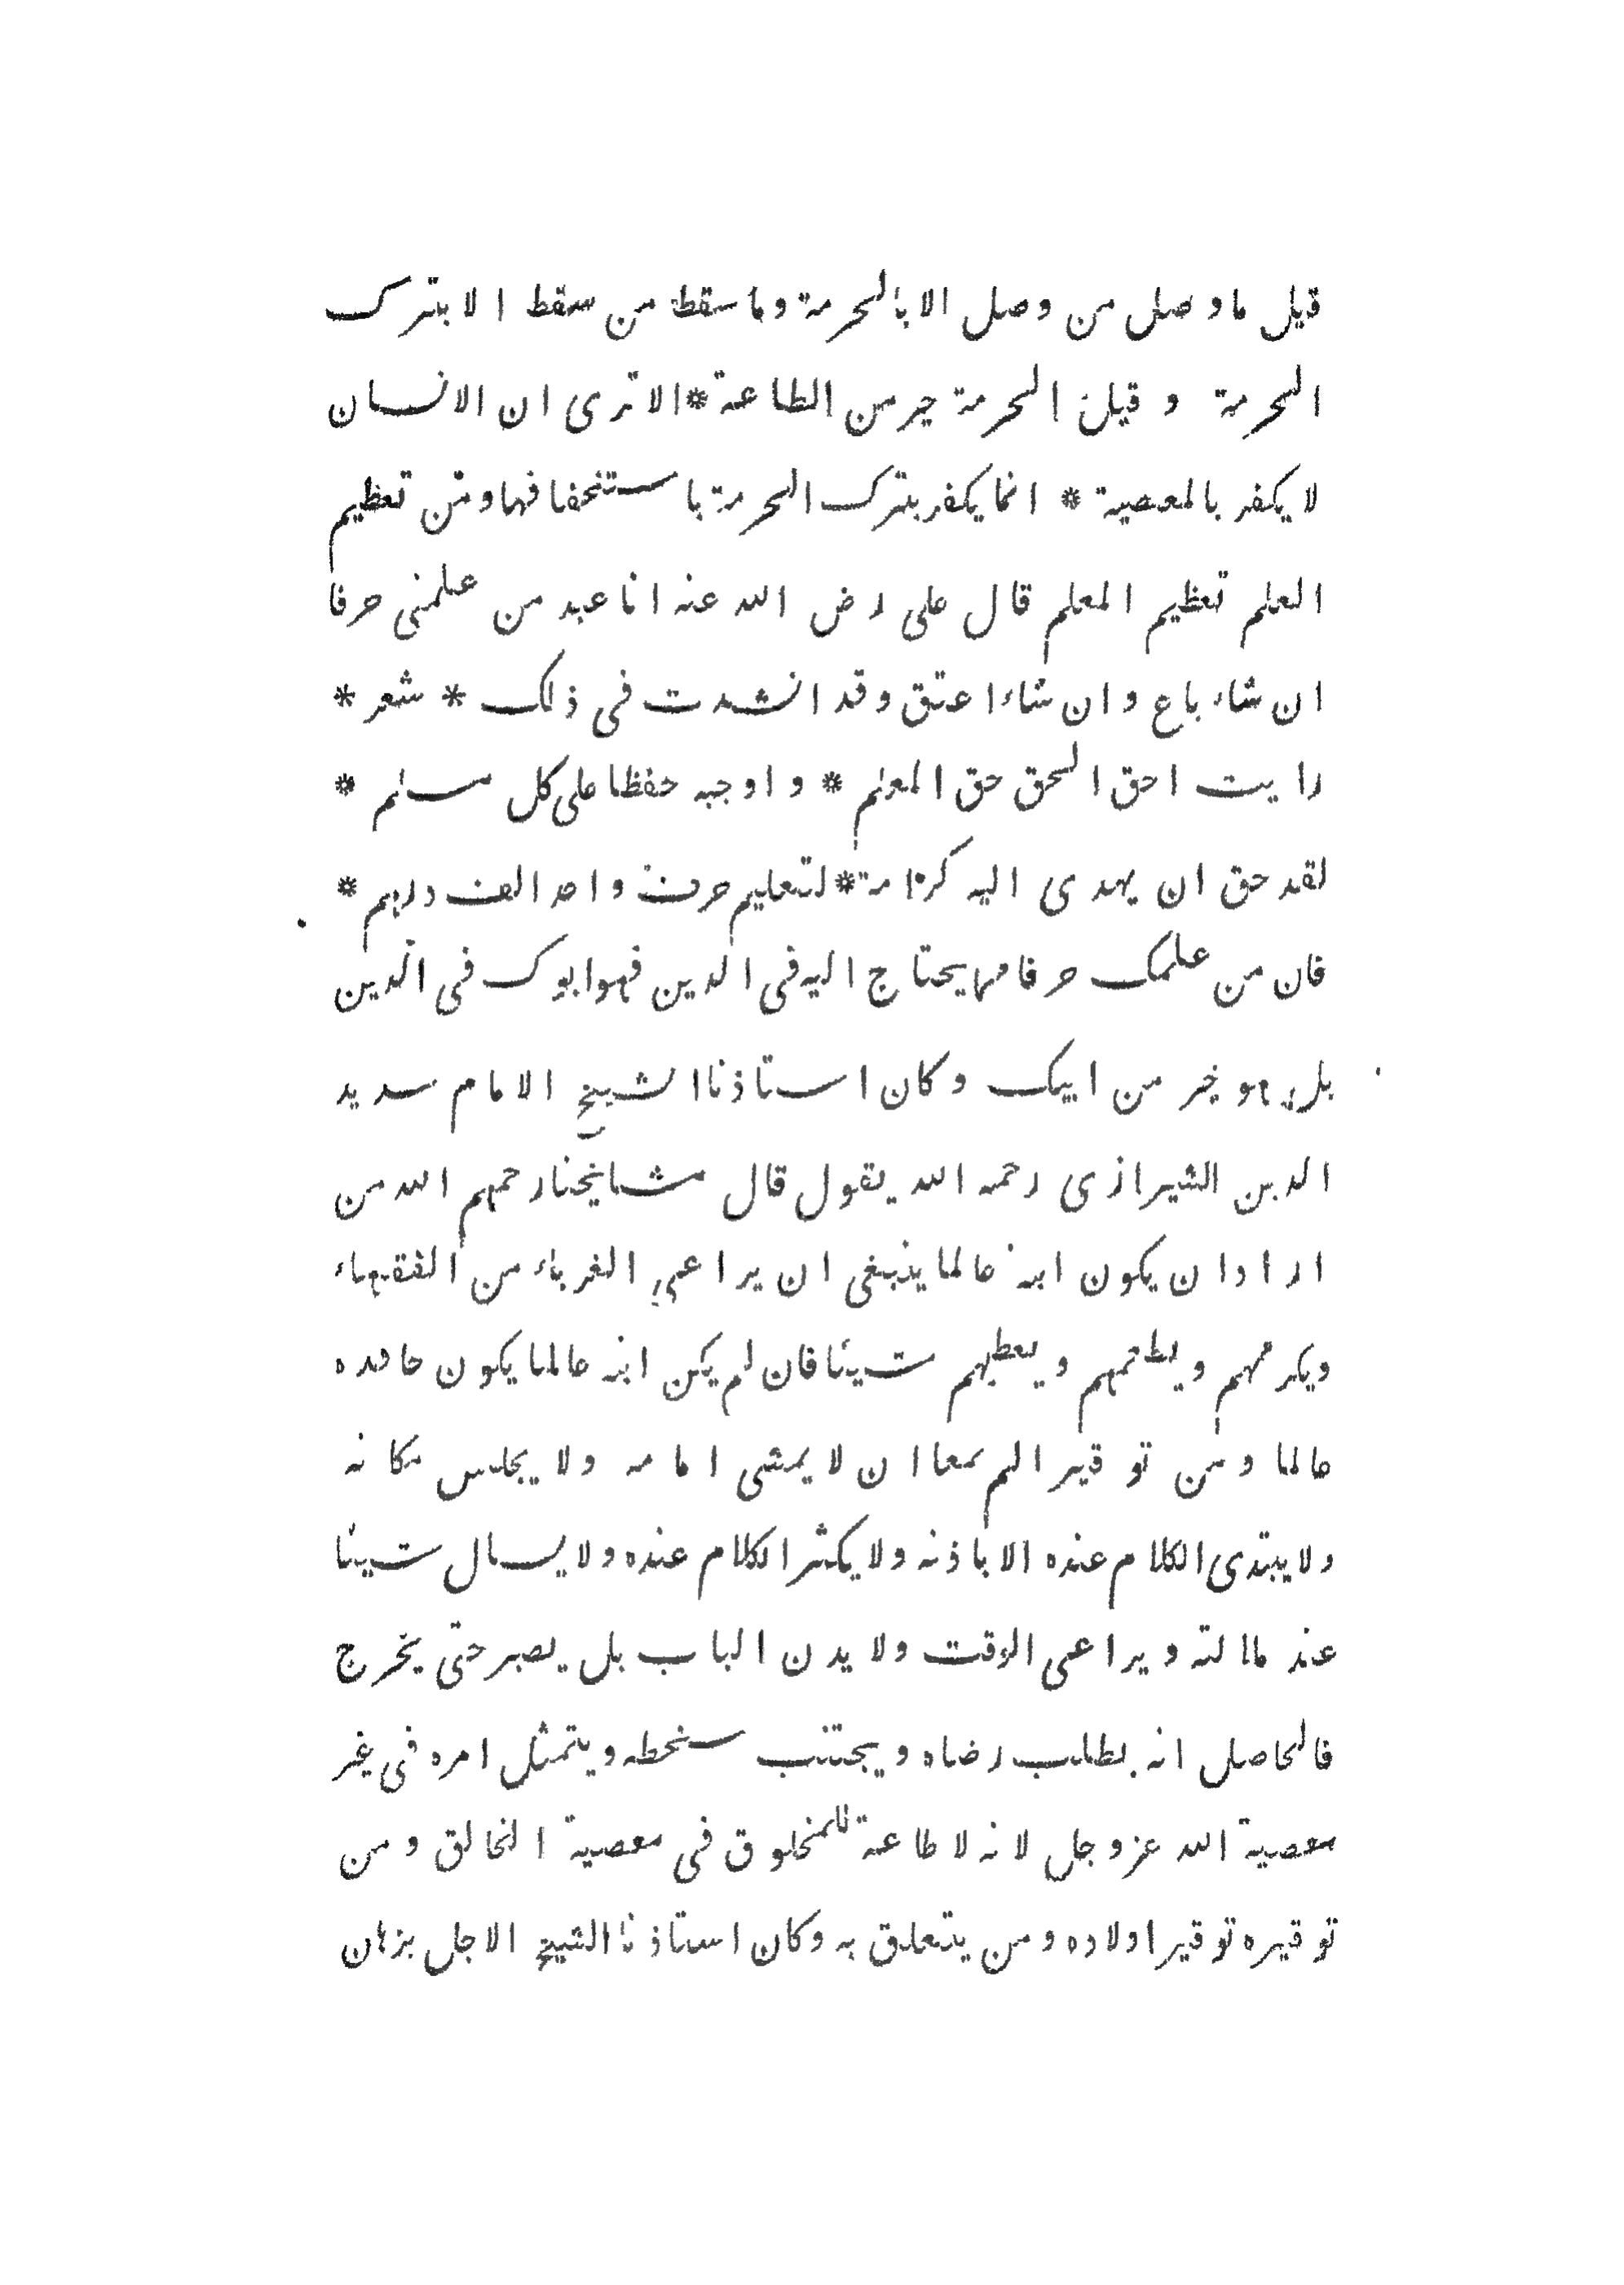 قيل ما وصل من وصل الا بالحرمة وما سقط من سقط الا بترك
الحرمة و قيل الحرمة خير من الطاعة * الا ترى ان الانسان
لا يكفر بالمعصية * انما يكفر بترك الحرمة باستخفافها ومن تعظيم
العلم تعظيم المعلم قال على رض الله عنه انا عبد من علمنى حرفا
ان شاء باع وان شاء اعتق وقد انشدت فى ذلك * شعر *
رايت احق الحق حق المعلم * و اوجبه حفظا على كل مسلم *
لقد حق ان يهدى اليه كرامة * لتعليم حرف واحد الف درهم *
فان من علمك حرفا مما يحتاج اليه فى الدين فهو ابوك فى الدين
بل هو خير من ابيك وكان استاذنا الشيخ الامام سديد
الدين الشيرازى رحمه الله يقول قال مشايخنا رحمهم الله من
اراد ان يكون ابنه عالما ينبغى ان يراعى الغرباء من الفقهاء
ويكرمهم ويطعمهم ويعطيهم شيئا فان لم يكن ابنه عالما يكون حافده
عالما ومن توقير المعلم ان لا يمشى امامه ولا يجلس مكانه
ولا يبتدى الكلام عنده الا باذنه ولا يكثر الكلام عنده ولا يسال شيئا
عند ملالته ويراعى الوقت ولا يدن الباب بل يصبر حتى يخرج
فالحاصل انه يطلب رضاه ويجتنب سخطه ويتمثل امره فى غير
معصية الله عزوجل لانه لا طاعة للمخلوق فى معصية الخالق ومن
توقيره توقير اولاده ومن يتعلق به وكان استاذنا الشيخ الاجل برهان